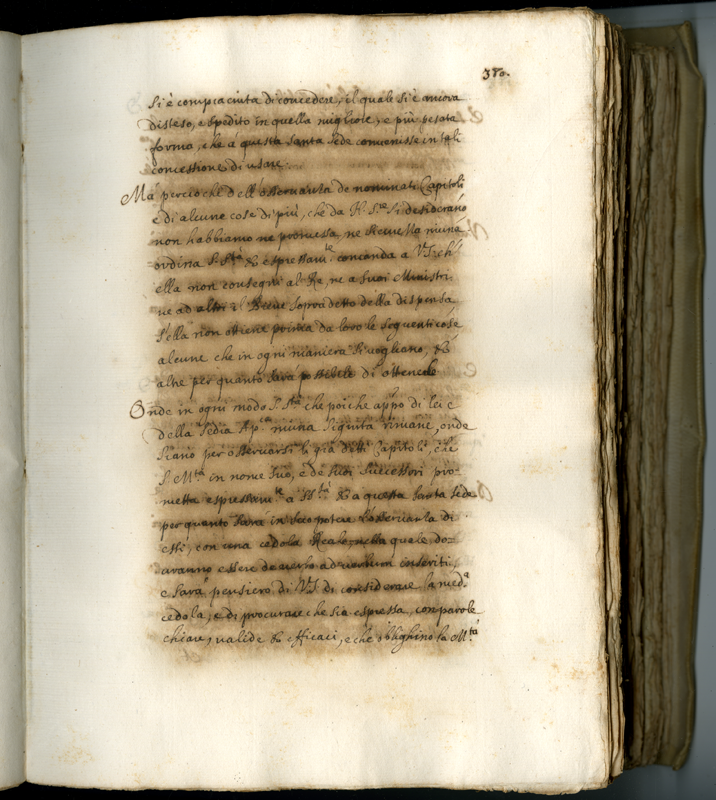 380.
si è compiaciuta di concedere, il quale si è ancora
disteso, e spedito in quella migliore, e più pesata
forma, che à questa Santa Sede convenisse in tali
concessione di usare.
Mà perciò che dell'osservanza de nominati Capitoli
e di alcune cose di più, che da S. Stà si desiderano
non habbiamo ne promessa, ne sicurezza niuna
ordina S. Stà & espressamte comanda a V.S. ch'
ella non consegni al Re, ne a suoi Ministri
ne ad altri il Breve sopradetto della dispensa
s'ella non ottiene prima da loro le seguenti cose
alcune che in ogni maniera si vogliano, &
altre per quanto sarà possibile di ottenerle
Onde in ogni modo S. Stà che poiche appo di lei e
della Sedia Apca niuna sicurtà rimane, onde
siano per osservarsi li già detti Capitoli, che
S. Mtà in nome suo, e de suoi successori pro-
metta espressamte a S. Stà & a questa Santa Sede
per quanto sarà in suo potere l'osservanza di
essi, con una cedola Reale, nella quale do-
vranno essere de verbo ad verbum inseriti,
e sarà pensiero di V.S. di considerare la meda
cedola, e di procurare che sia espressa, con parole
chiare, valide & efficaci, e che oblighino la Mtà